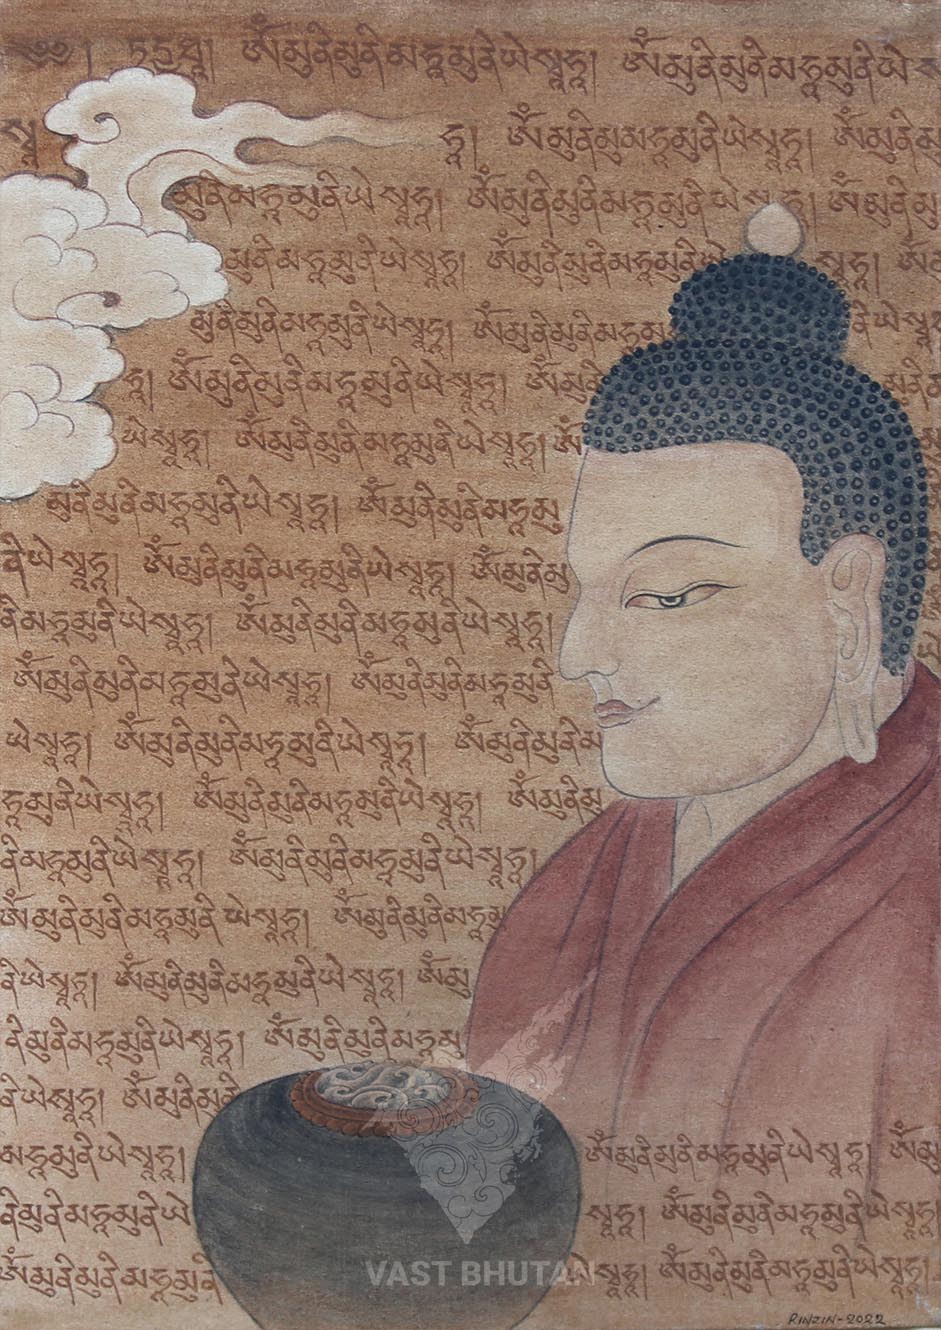 ༄༅། ཏདྱཐཱ། ཨོཾམུནིམུནིམཧཱམུནིཡེསྭཱཧཱ། ཨོཾམུནིམུནིམཧཱམུནིཡེ
སྭཱ ཧཱ། ཨོཾམུནིམུམཧཱམུནིཡེསྭཱཧཱ། ཨོཾམུནིམ
མུནིམཧཱམུནིཡེསྭཱཧཱ། ཨོཾམུནིམུནིམཧཱམུནིཡེསྭཱཧཱ། ཨོཾམུནིམུ
མུནིམཧཱམུནིཡེསྭཱཧཱ། ཨོཾམུནིམུནིམཧཱམུནིཡེ སྭཱཧཱ། ཨོཾམ
མུནིམུནིམཧཱམུནིཡེསྭཱཧཱ། ཨོཾམུནིམུནིམཧཱམུ ནིཡེསྭཱཧཱ
ཧཱ། ཨོཾམུནིམུནིམཧཱམུནིཡེསྭཱཧཱ། ཨོཾམུནི མུནི
ཡེསྭཱཧཱ། ཨོཾམུནིམུནིམཧཱམུནིཡེསྭཱཧཱ། ཨོཾམ
མུནིམུནིམཧཱམུནིཡེསྭཱཧཱ། ཨོཾམུནིམུནིམཧཱམུ
ནིཡེསྭཱཧཱ། ཨོཾམུནིམུནིམཧཱམུནིཡེསྭཱཧཱ། ཨོཾམུནིམུ
ནིམཧཱམུནིཡེསྭཱཧཱ། ཨོཾམུནིམུནིམཧཱམུནིཡེསྭཱཧཱ།
ཨོཾམུནིམུནིམཧཱམུནིཡེསྭཱཧཱ། ཨོཾམུནིམུནིམཧཱམུནི
ཡེསྭཱཧཱ། ཨོཾམུནིམུནིམཧཱམུནིཡེསྭཱཧཱ། ཨོཾམུནིམུནིམ
ཧཱམུནིཡེསྭཱཧཱ། ཨོཾམུནིམུནིམཧཱམུནིཡེསྭཱཧཱ། ཨོཾམུནིམུ
ནིམཧཱམུནིཡེསྭཱཧཱ། ཨོཾམུནིམུནིམཧཱམུནིཡེསྭཱཧཱ།
ཨོཾམུནིམུནིམཧཱམུནིཡེསྭཱཧཱ། ཨོཾམུནིམུནིམཧཱམུ
ནིཡེསྭཱཧཱ། ཨོཾམུནིམུནིམཧཱམུནིཡེསྭཱཧཱ། ཨོཾམུ
ནིམུནིམཧཱམུནིཡེསྭཱཧཱ། ཨོཾམུནིམུནིམཧཱམུ
ནིཡེསྭཱཧཱ། ཨོཾམུནིམུནི
མཧཱམུནིཡེསྭཱཧཱ། ཨོཾམུནིམུནིམཧཱམུནིཡེསྭཱཧཱ། ཨོཾམུ
ནིམུནིམཧཱམུནིཡེ སྭཱཧཱ། ཨོཾམུནིམུནིམཧཱམུནིཡེསྭཱཧཱ
ཨོཾམུནིམུནིམཧཱམུནི ཡེསྭཱཧཱ། ཨོཾམུནིམུནིམཧཱམུནིཡེསྭཱཧཱ།
VAST BHUTAN
RINZIN-2022